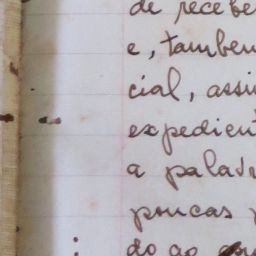 de recebe
e, tambem
cial, assi
expedien
a palav
poucas
do ao